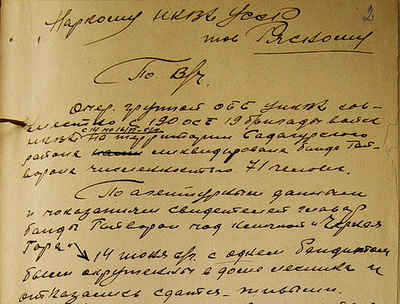 2
Наркому НКВД УССР
тов Рясному
По ВЧ.
Опер. группой ОББ УНКВД сов-
местно с 190 осб 19 бригады войск
НКВД с 14 по 16/VI-с/г на территории Садагурского
района ликвидирована банда Рат-
ворона численностью 71 человек.
По агентурным данным
и показаниям свидетелей главар
банды Ратворон под кличкой "Черная
Гора"
14 июня с/г. с одним бандитом
были окружены в доме лесника и
отказались сдаться живыми.